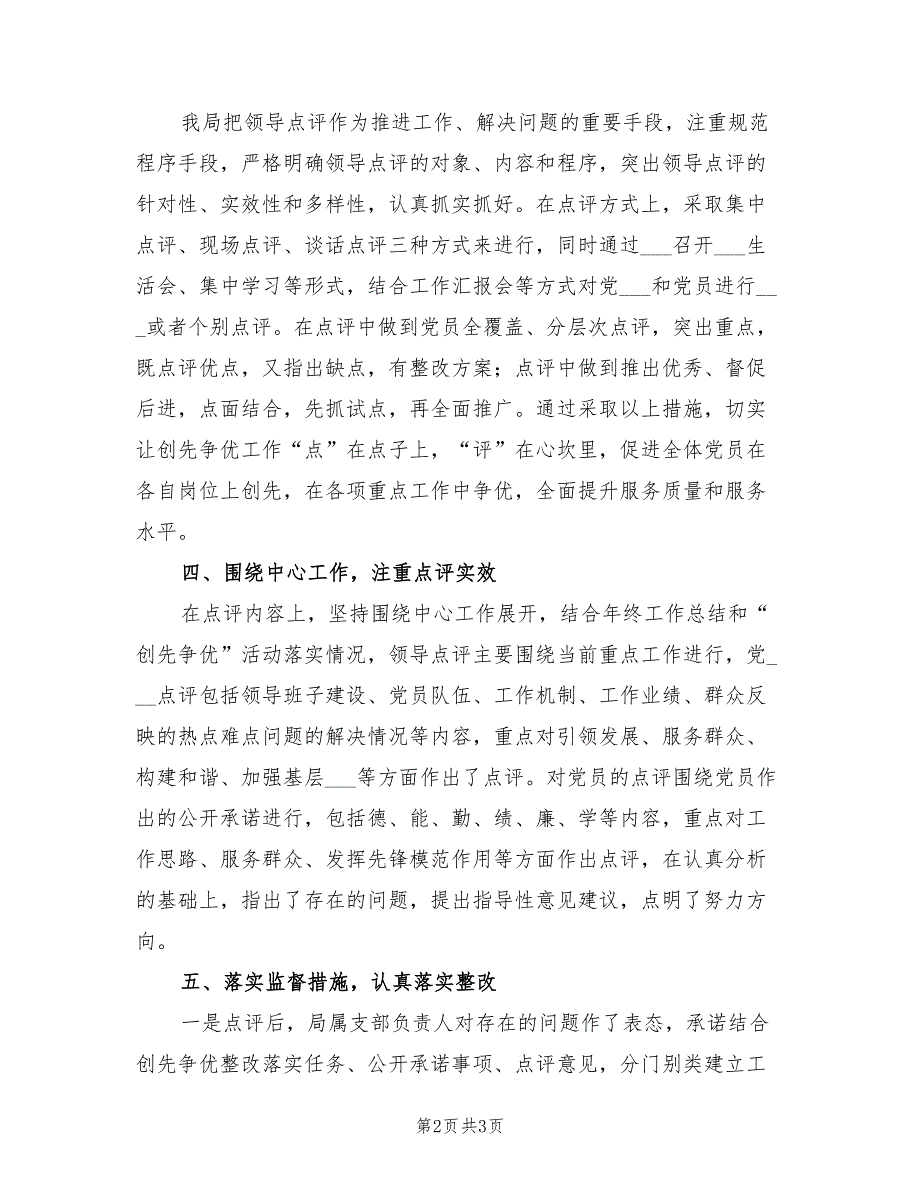 我局把领导点评作为推进工作、解决问题的重要手段，注重规范
程序手段，严格明确领导点评的对象、内容和程序，突出领导点评的
针对性、实效性和多样性，认真抓实抓好。在点评方式上，采取集中
点评、现场点评、谈话点评三种方式来进行，同时通过___召开___生
活会、集中学习等形式，结合工作汇报会等方式对党___和党员进行__
_或者个别点评。在点评中做到党员全覆盖、分层次点评，突出重点，
既点评优点，又指出缺点，有整改方案；点评中做到推出优秀、督促
后进，点面结合，先抓试点，再全面推广。通过采取以上措施，切实
让创先争优工作“点”在点子上，“评”在心坎里，促进全体党员在
各自岗位上创先，在各项重点工作中争优，全面提升服务质量和服务
水平。
四、围绕中心工作，注重点评实效
在点评内容上，坚持围绕中心工作展开，结合年终工作总结和“
创先争优”活动落实情况，领导点评主要围绕当前重点工作进行，党_
__点评包括领导班子建设、党员队伍、工作机制、工作业绩、群众反
映的热点难点问题的解决情况等内容，重点对引领发展、服务群众、
构建和谐、加强基层___等方面作出了点评。对党员的点评围绕党员作
出的公开承诺进行，包括德、能、勤、绩、廉、学等内容，重点对工
作思路、服务群众、发挥先锋模范作用等方面作出点评，在认真分析
的基础上，指出了存在的问题，提出指导性意见建议，点明了努力方
向。
五、落实监督措施，认真落实整改
一是点评后，局属支部负责人对存在的问题作了表态，承诺结合
创先争优整改落实任务、公开承诺事项、点评意见，分门别类建立工
第2页共3页